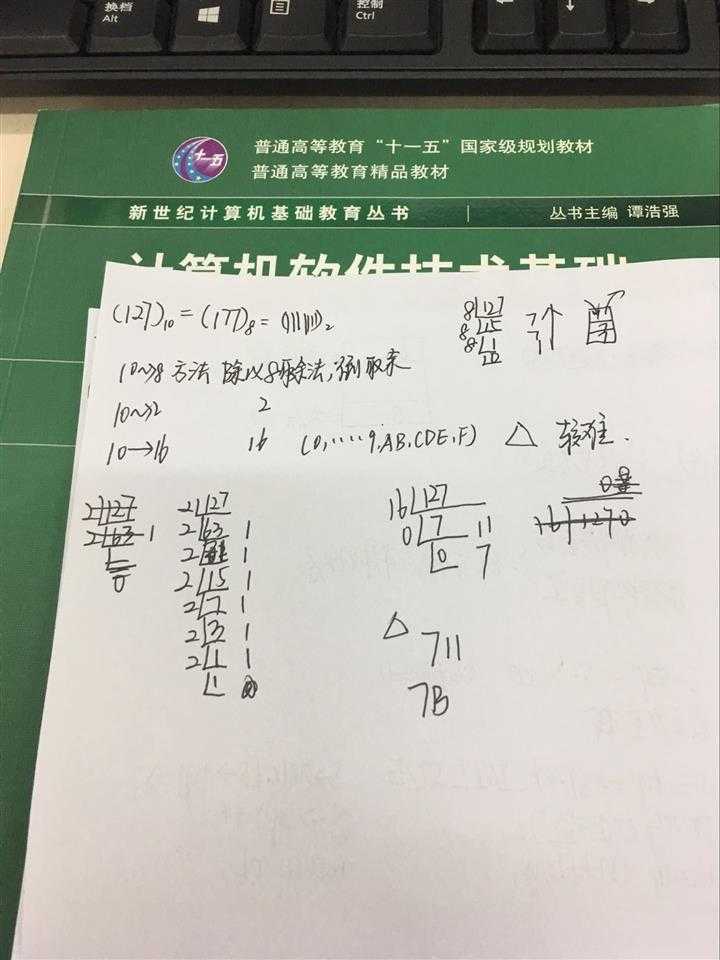 换档
Alt
控制
Ctrl
十一五
普通高等教育“十一五”国家级规划教材
普通高等教育精品教材
新世纪计算机基础教育丛书 丛书主编 谭浩强
计算机软件技术基础
(127)₁₀ = (177)₈ = (1111111)₂
10→8 方法 除以8除法,倒取来
10→2 2
10→16 16 (0,.....9,AB,CDE,F) △ 较难.
8 127
8 15
8 1
7个
2 127
2 63 1
2 127
2 63 1
2
2 15 1
2 7 1
2 3 1
2 1 1
1
16 127
0 7 11
0 7
16 1270
△
711
7B